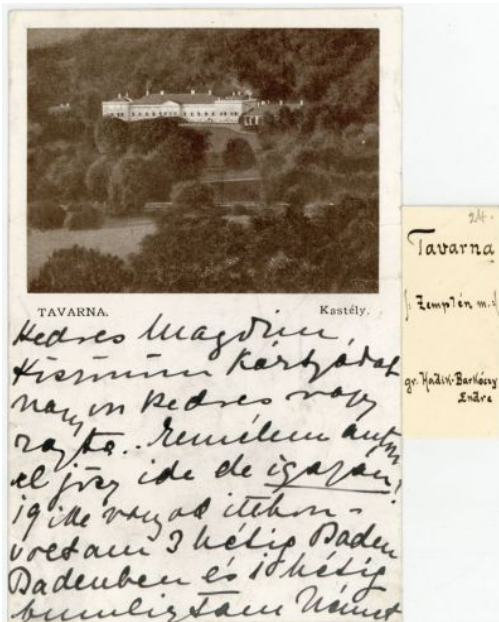 TAVARNA.
Kastély.
Kedves Magdim,
Köszönöm kártyádat
nagyon kedves vagy
rajta. Remélem
el jösz ide de igazán!
19 ike
voltam 3 hétig Baden
Badenben és 10 hétig
Német
24.
Tavarna
/: Zemplén m. :/
gr. Hadik-Barkóczy
Endre